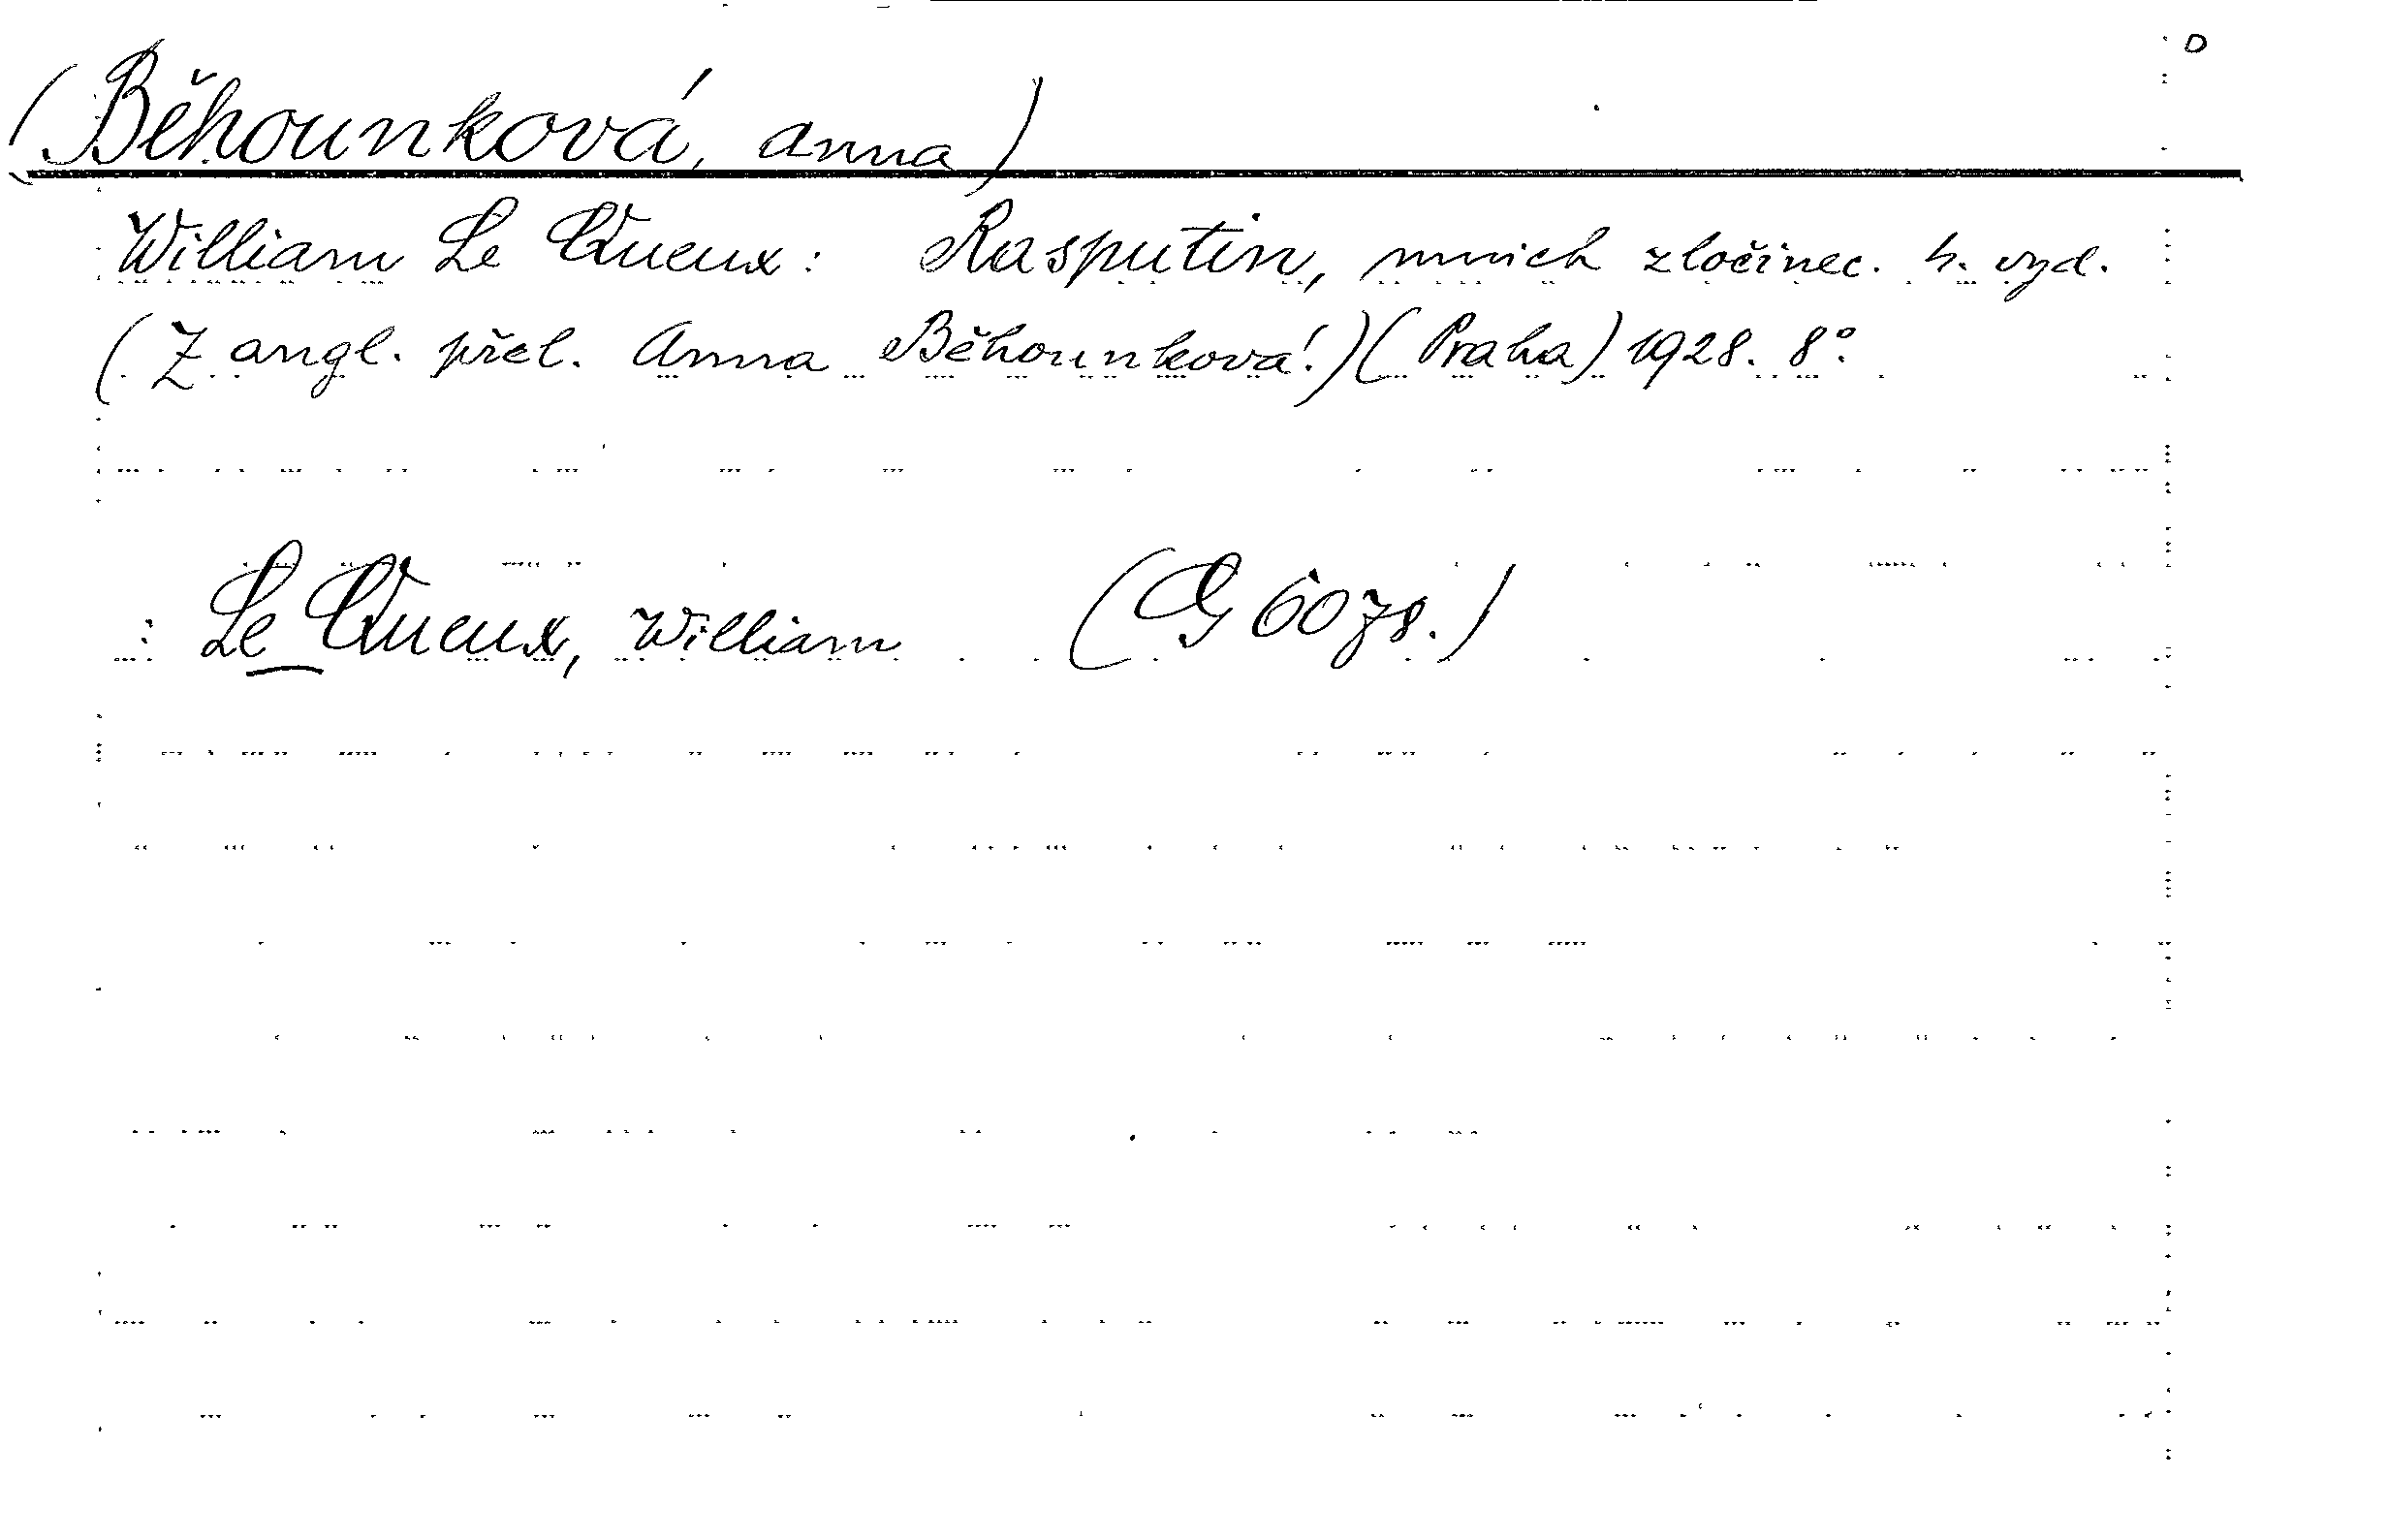 (Běhounková, Anna)
William Le Queux: Rasputin, mnich zločinec. h. vyd.
(Z angl. přel. Anna Běhounková.) (Praha) 1928. 8°.
: Le Queux, William (G 6078.)